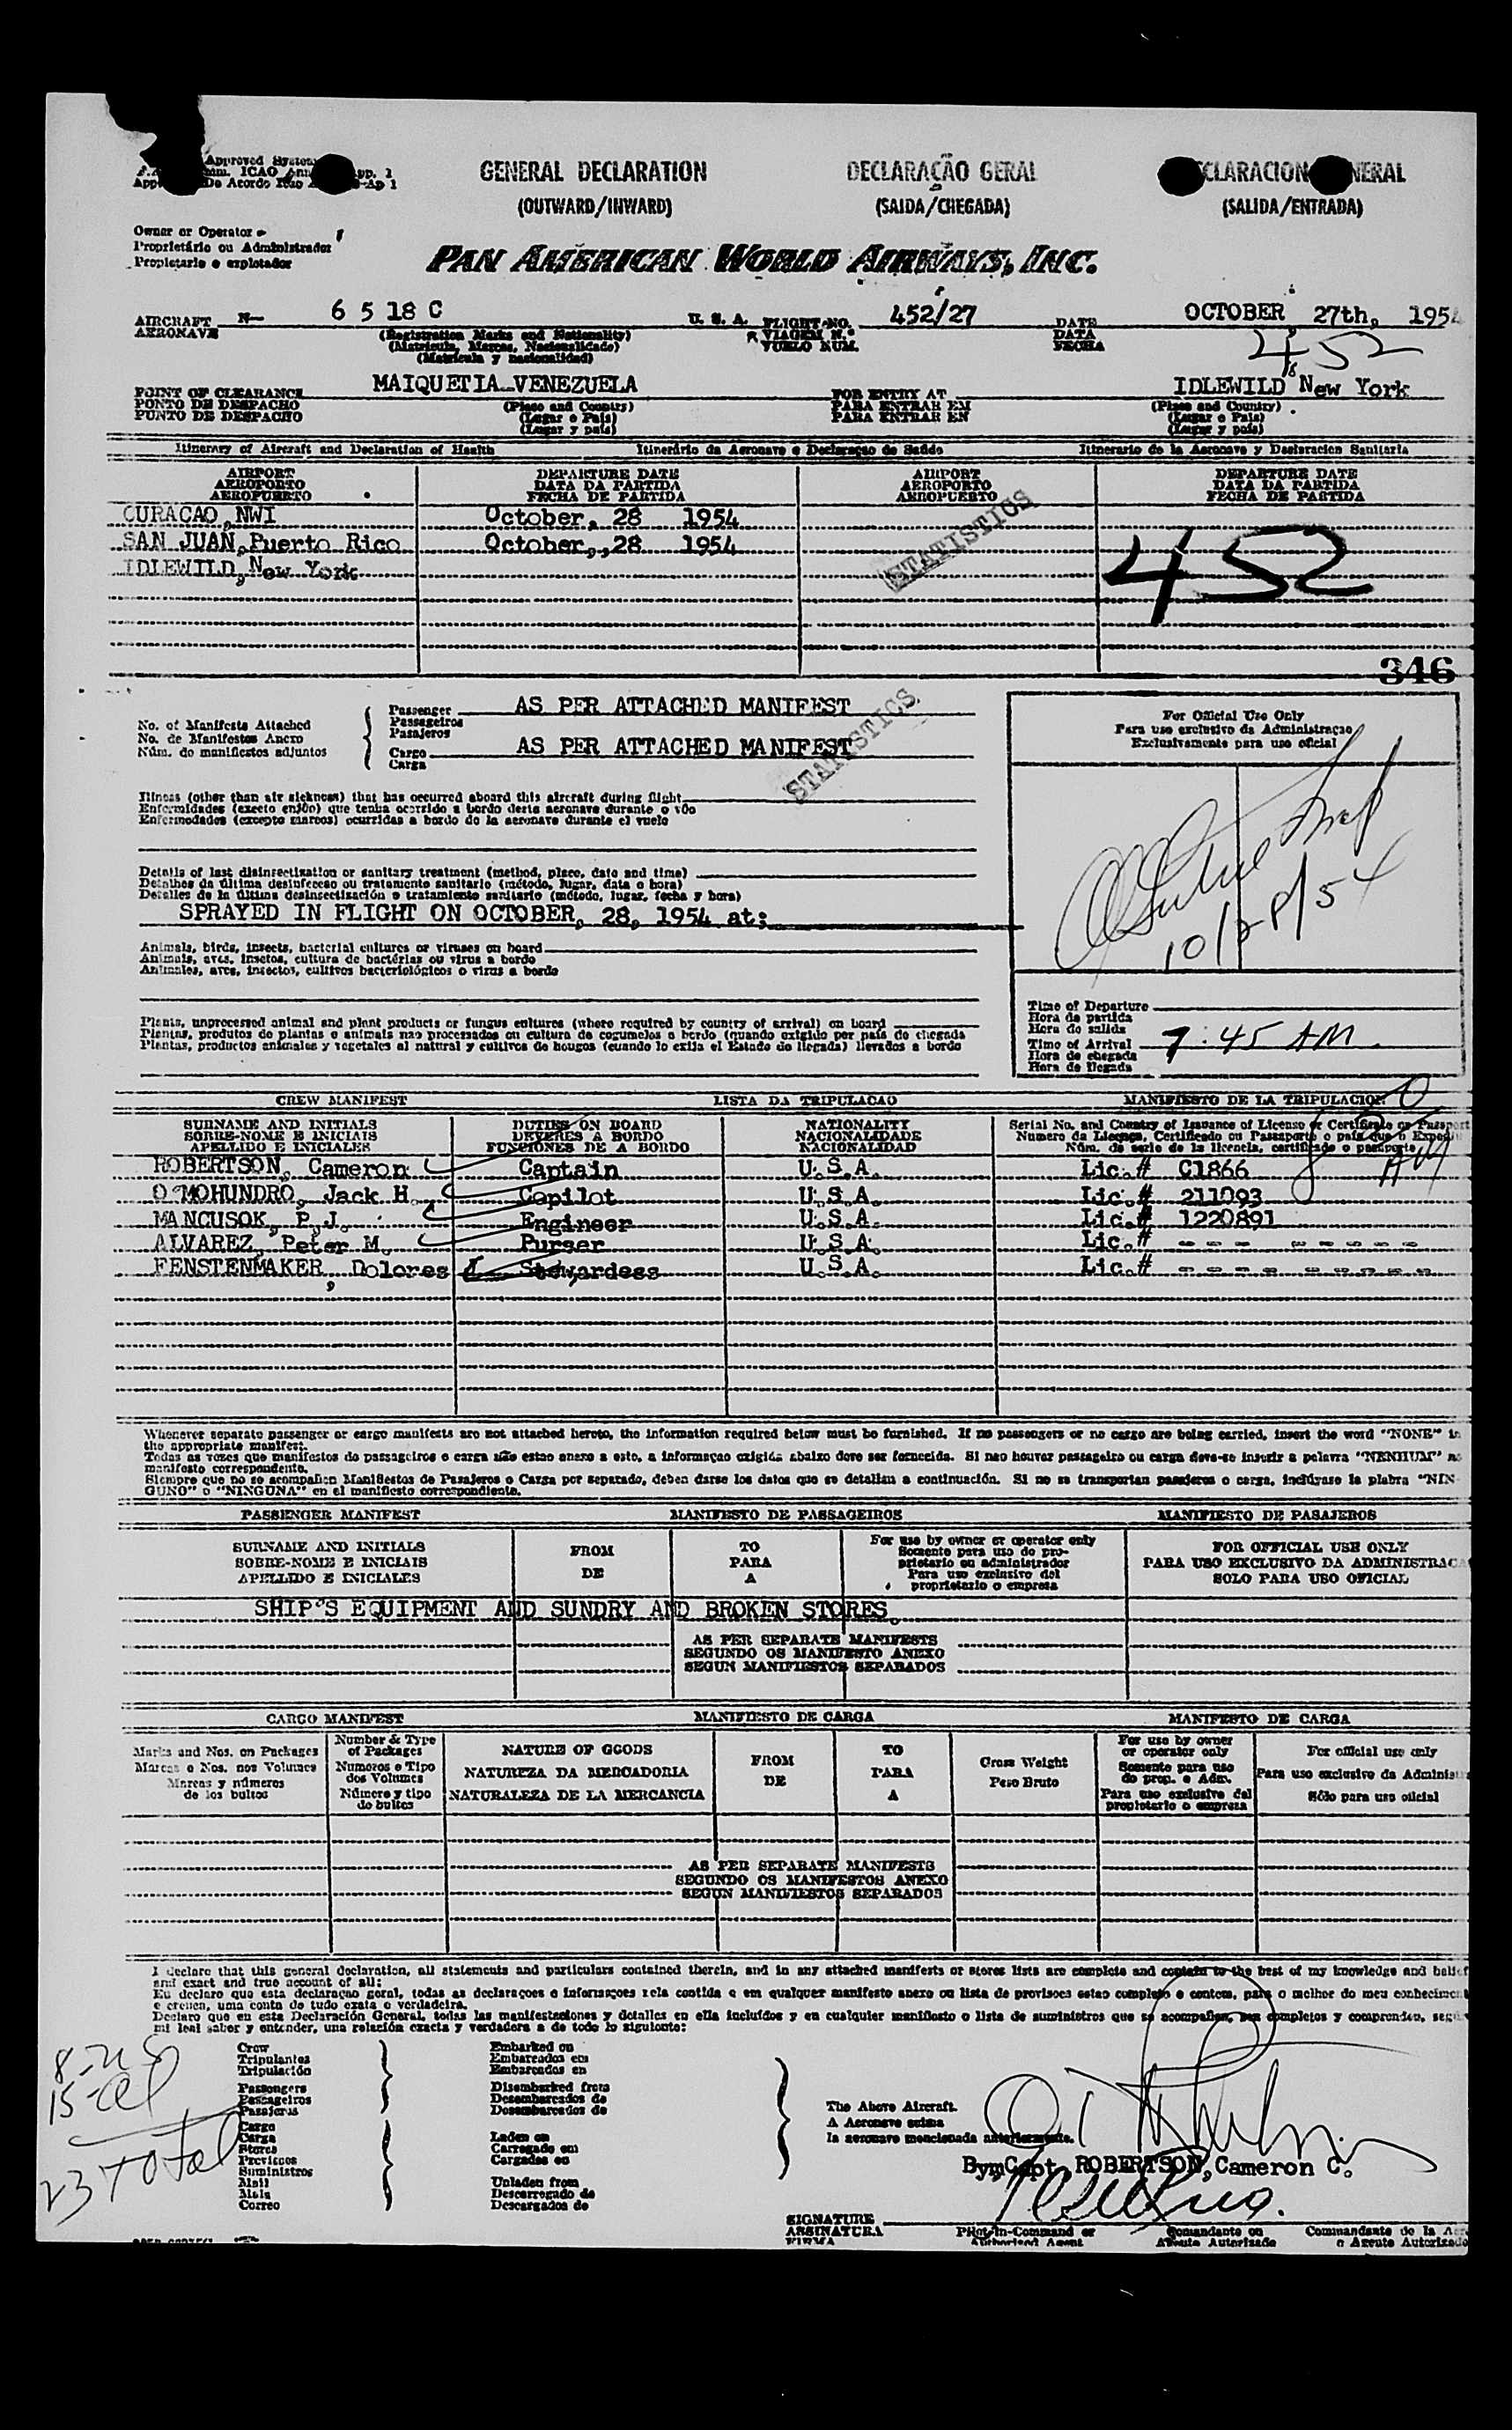 Approved System
ICAO
De Acordo
GENERAL DECLARATION
(OUTWARD/INWARD)
DECLARAÇÃO GERAL
(SAIDA/CHEGADA)
CLARACION NERAL
(SALIDA/ENTRADA)
Owner or Operator
Proprietário ou Administrador
Propietario o explotador
PAN AMERICAN WORLD AIRWAYS, INC.
AIRCRAFT N- 6 5 18 C U. S. A. FLIGHT NO. 452/27 DATE OCTOBER 27th, 1954
AERONAVE (Registration Marks and Nationality) VIAGEM N.º DATA
(Matricula, Marcas, Nacionalidade) VUELO NUM. FECHA
(Matricula y nacionalidad)
452
POINT OF CLEARANCE MAIQUETIA VENEZUELA FOR ENTRY AT IDLEWILD New York
PONTO DE DESPACHO (Place and Country) PARA ENTRAR EM (Place and Country)
PUNTO DE DESPACHO (Lugar o Pais) PARA ENTRAR EN (Lugar o Pais)
(Lugar y pais) (Lugar y pais)
Itinerary of Aircraft and Declaration of Health Itinerário da Aeronave e Declaraçao de Saúde Itinerario de la Aeronave y Declaracion Sanitaria
AIRPORT DEPARTURE DATE AIRPORT DEPARTURE DATE
AEROPORTO DATA DA PARTIDA AEROPORTO DATA DA PARTIDA
AEROPUERTO FECHA DE PARTIDA AEROPUERTO FECHA DE PARTIDA
CURACAO, NWI October, 28 1954
SAN JUAN, Puerto Rico October,,28 1954
IDLEWILD, New York
STATISTICS
452
346
No. of Manifests Attached
No. de Manifestos Anexo
Núm. de manifiestos adjuntos
Passenger AS PER ATTACHED MANIFEST
Passageiros
Pasajeros
Cargo AS PER ATTACHED MANIFEST
Carga
STATISTICS
For Official Use Only
Para uso exclusivo da Administraçao
Exclusivamente para uso oficial
10/28/54
Illness (other than air sickness) that has occurred aboard this aircraft during flight
Enfermidades (exceto enjôo) que tenha ocorrido a bordo desta aeronave durante o vôo
Enfermedades (excepto mareos) ocurridas a bordo de la aeronave durante el vuelo
Details of last disinsectization or sanitary treatment (method, place, date and time)
Detalhes da última desinfeccao ou tratamento sanitario (método, lugar, data o hora)
Detalles de la última desinsectización o tratamiento sanitario (método, lugar, fecha y hora)
SPRAYED IN FLIGHT ON OCTOBER, 28, 1954 at;
Animals, birds, insects, bacterial cultures or viruses on board
Animais, aves, insetos, cultura de bactérias ou virus a bordo
Animales, aves, insectos, cultivos bacteriológicos o virus a bordo
Plants, unprocessed animal and plant products or fungus cultures (where required by country of arrival) on board
Plantas, produtos de plantas e animais nao processados ou cultura de cogumelos a bordo (quando exigido por país de chegada
Plantas, productos animales y vegetales al natural y cultivos de hongos (cuando lo exija el Estado de llegada) llevados a bordo
Time of Departure
Hora de partida
Hora de salida
Time of Arrival 7:45 AM.
Hora de chegada
Hora de llegada
CREW MANIFEST LISTA DA TRIPULACAO MANIFIESTO DE LA TRIPULACION
SURNAME AND INITIALS DUTIES ON BOARD NATIONALITY Serial No. and Country of Issuance of License or Certificate or Passport
SOBRE-NOME E INICIAIS DEVERES A BORDO NACIONALIDADE Numero da Licença, Certificado ou Passaporte o país que o Expediu
APELLIDO E INICIALES FUNCIONES DE A BORDO NACIONALIDAD Núm. de serie de la licencia, certificado o pasaporte
ROBERTSON, Cameron Captain U.S.A. Lic.# C1866
O'MOHUNDRO, Jack H. Copilot U.S.A. Lic.# 211093
MANCUSOK, P.J. Engineer U.S.A. Lic.# 1220891
ALVAREZ, Peter M. Purser U.S.A. Lic.# - - - - - - - - -
FENSTENMAKER, Dolores Stewardess U.S.A. Lic.# - - - - - - - - -
Whenever separate passenger or cargo manifests are not attached hereto, the information required below must be furnished. If no passengers or no cargo are being carried, insert the word "NONE" in
the appropriate manifest.
Todas as vezes que manifestos de passageiros e carga não estao anexo a esto, a informaçao exigida abaixo deve ser fornecida. Si nao houver passageiro ou carga deve-se inserir a palavra "NENHUM" no
manifesto correspondente.
Siempre que no se acompañen Manifiestos de Pasajeros o Carga por separado, deben darse los datos que se detallan a continuación. Si no se transportan pasajeros o carga, inclúyase la plabra "NIN-
GUNO" o "NINGUNA" en el manifiesto correspondiente.
PASSENGER MANIFEST MANIFESTO DE PASSAGEIROS MANIFIESTO DE PASAJEROS
SURNAME AND INITIALS FROM TO For use by owner or operator only FOR OFFICIAL USE ONLY
SOBRE-NOME E INICIAIS DE PARA Somente para uso do pro- PARA USO EXCLUSIVO DA ADMINISTRACA
APELLIDO E INICIALES A prietario ou administrador SOLO PARA USO OFICIAL
Para uso exclusivo del
proprietario o empresa
SHIP'S EQUIPMENT AND SUNDRY AND BROKEN STORES
AS PER SEPARATE MANIFESTS
SEGUNDO OS MANIFESTO ANEXO
SEGUN MANIFIESTOS SEPARADOS
CARGO MANIFEST MANIFIESTO DE CARGA MANIFESTO DE CARGA
Marks and Nos. on Packages Number & Type of Packages NATURE OF GOODS FROM TO Gross Weight For use by owner or operator only For official use only
Marcas e Nos. nos Volumes Numeros e Tipo dos Volumes NATUREZA DA MERCADORIA DE PARA Peso Bruto Somente para uso do prop. e Adm. Para uso exclusivo da Administ
Marcas y números de los bultos Número y tipo de bultos NATURALEZA DE LA MERCANCIA A Para uso exclusive del propietario o empresa Sólo para uso oficial
AS PER SEPARATE MANIFESTS
SEGUNDO OS MANIFESTOS ANEXO
SEGUN MANIFIESTOS SEPARADOS
I declare that this general declaration, all statements and particulars contained therein, and in any attached manifests or stores lists are complete and contain to the best of my knowledge and belief
and exact and true account of all:
Eu declaro que esta declaraçao geral, todas as declaraçoes e informaçoes nela contida e em qualquer manifesto anexo ou lista de provisoes estao completo e contem, para o melhor do meu conhecimen
e crenca, uma conta de tudo exata e verdadeira.
Declaro que en esta Declaración General, todas las manifestaciones y detalles en ella incluídos y en cualquier manifiesto o lista de suministros que se acompañen, son completos y comprenden, segú
mi leal saber y entender, una relación exacta y verdadera a de todo lo siguiente:
8-US
15-al
23 Total
Crew
Tripulantes
Tripulación
Passengers
Passageiros
Pasajeros
Cargo
Carga
Stores
Previcoes
Suministros
Mail
Mala
Correo
Embarked on
Embarcados em
Embarcados en
Disembarked from
Desembarcados de
Desembarcados de
Laden on
Carregado em
Cargados en
Unladen from
Descarregado de
Descargados de
The Above Aircraft.
A Aeronave acima
la aeronave mencionada anteriormente.
By:mCapt. ROBERTSON, Cameron C.
SIGNATURE
ASSINATURA
FIRMA
Pilot-in-Command or Comandante ou Commandante de la Aer
Authorized Agent Agente Autorizado o Agente Autorizado